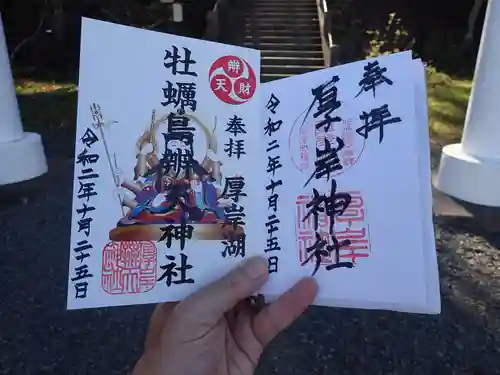 奉拝
厚岸神社
令和二年十月二十五日
辨財天
奉拝 厚岸湖
牡蠣島辨天神社
令和二年十月二十五日